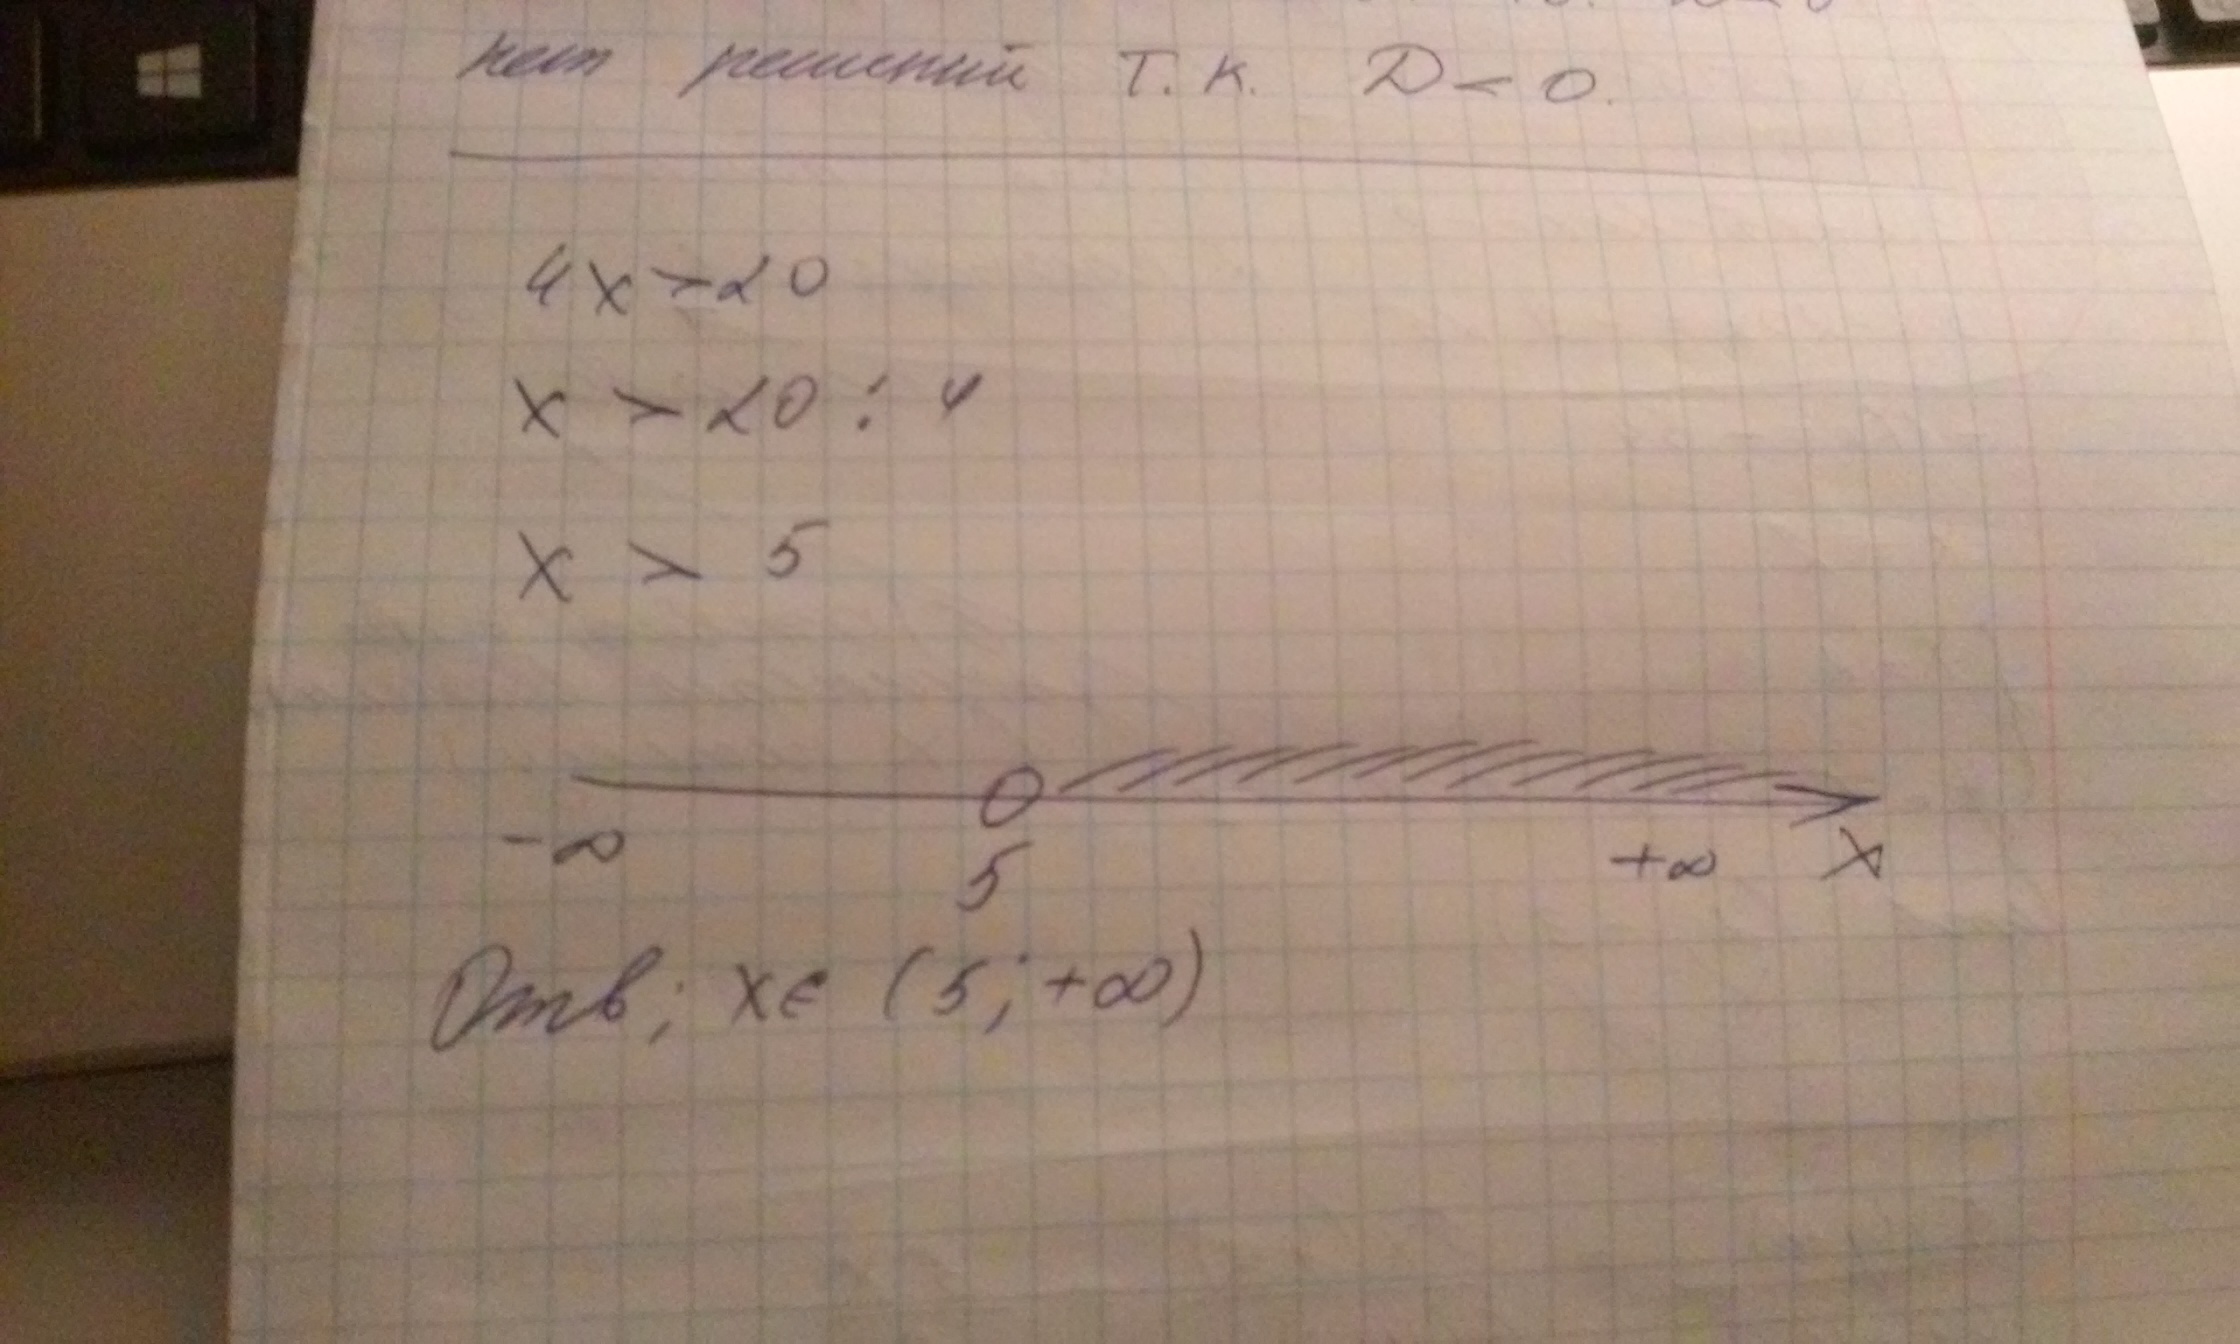 нет решений т.к. D < 0.
4x > 20
x > 20 : 4
x > 5
-∞ 5 +∞ x
Отв; x ∈ (5; +∞)